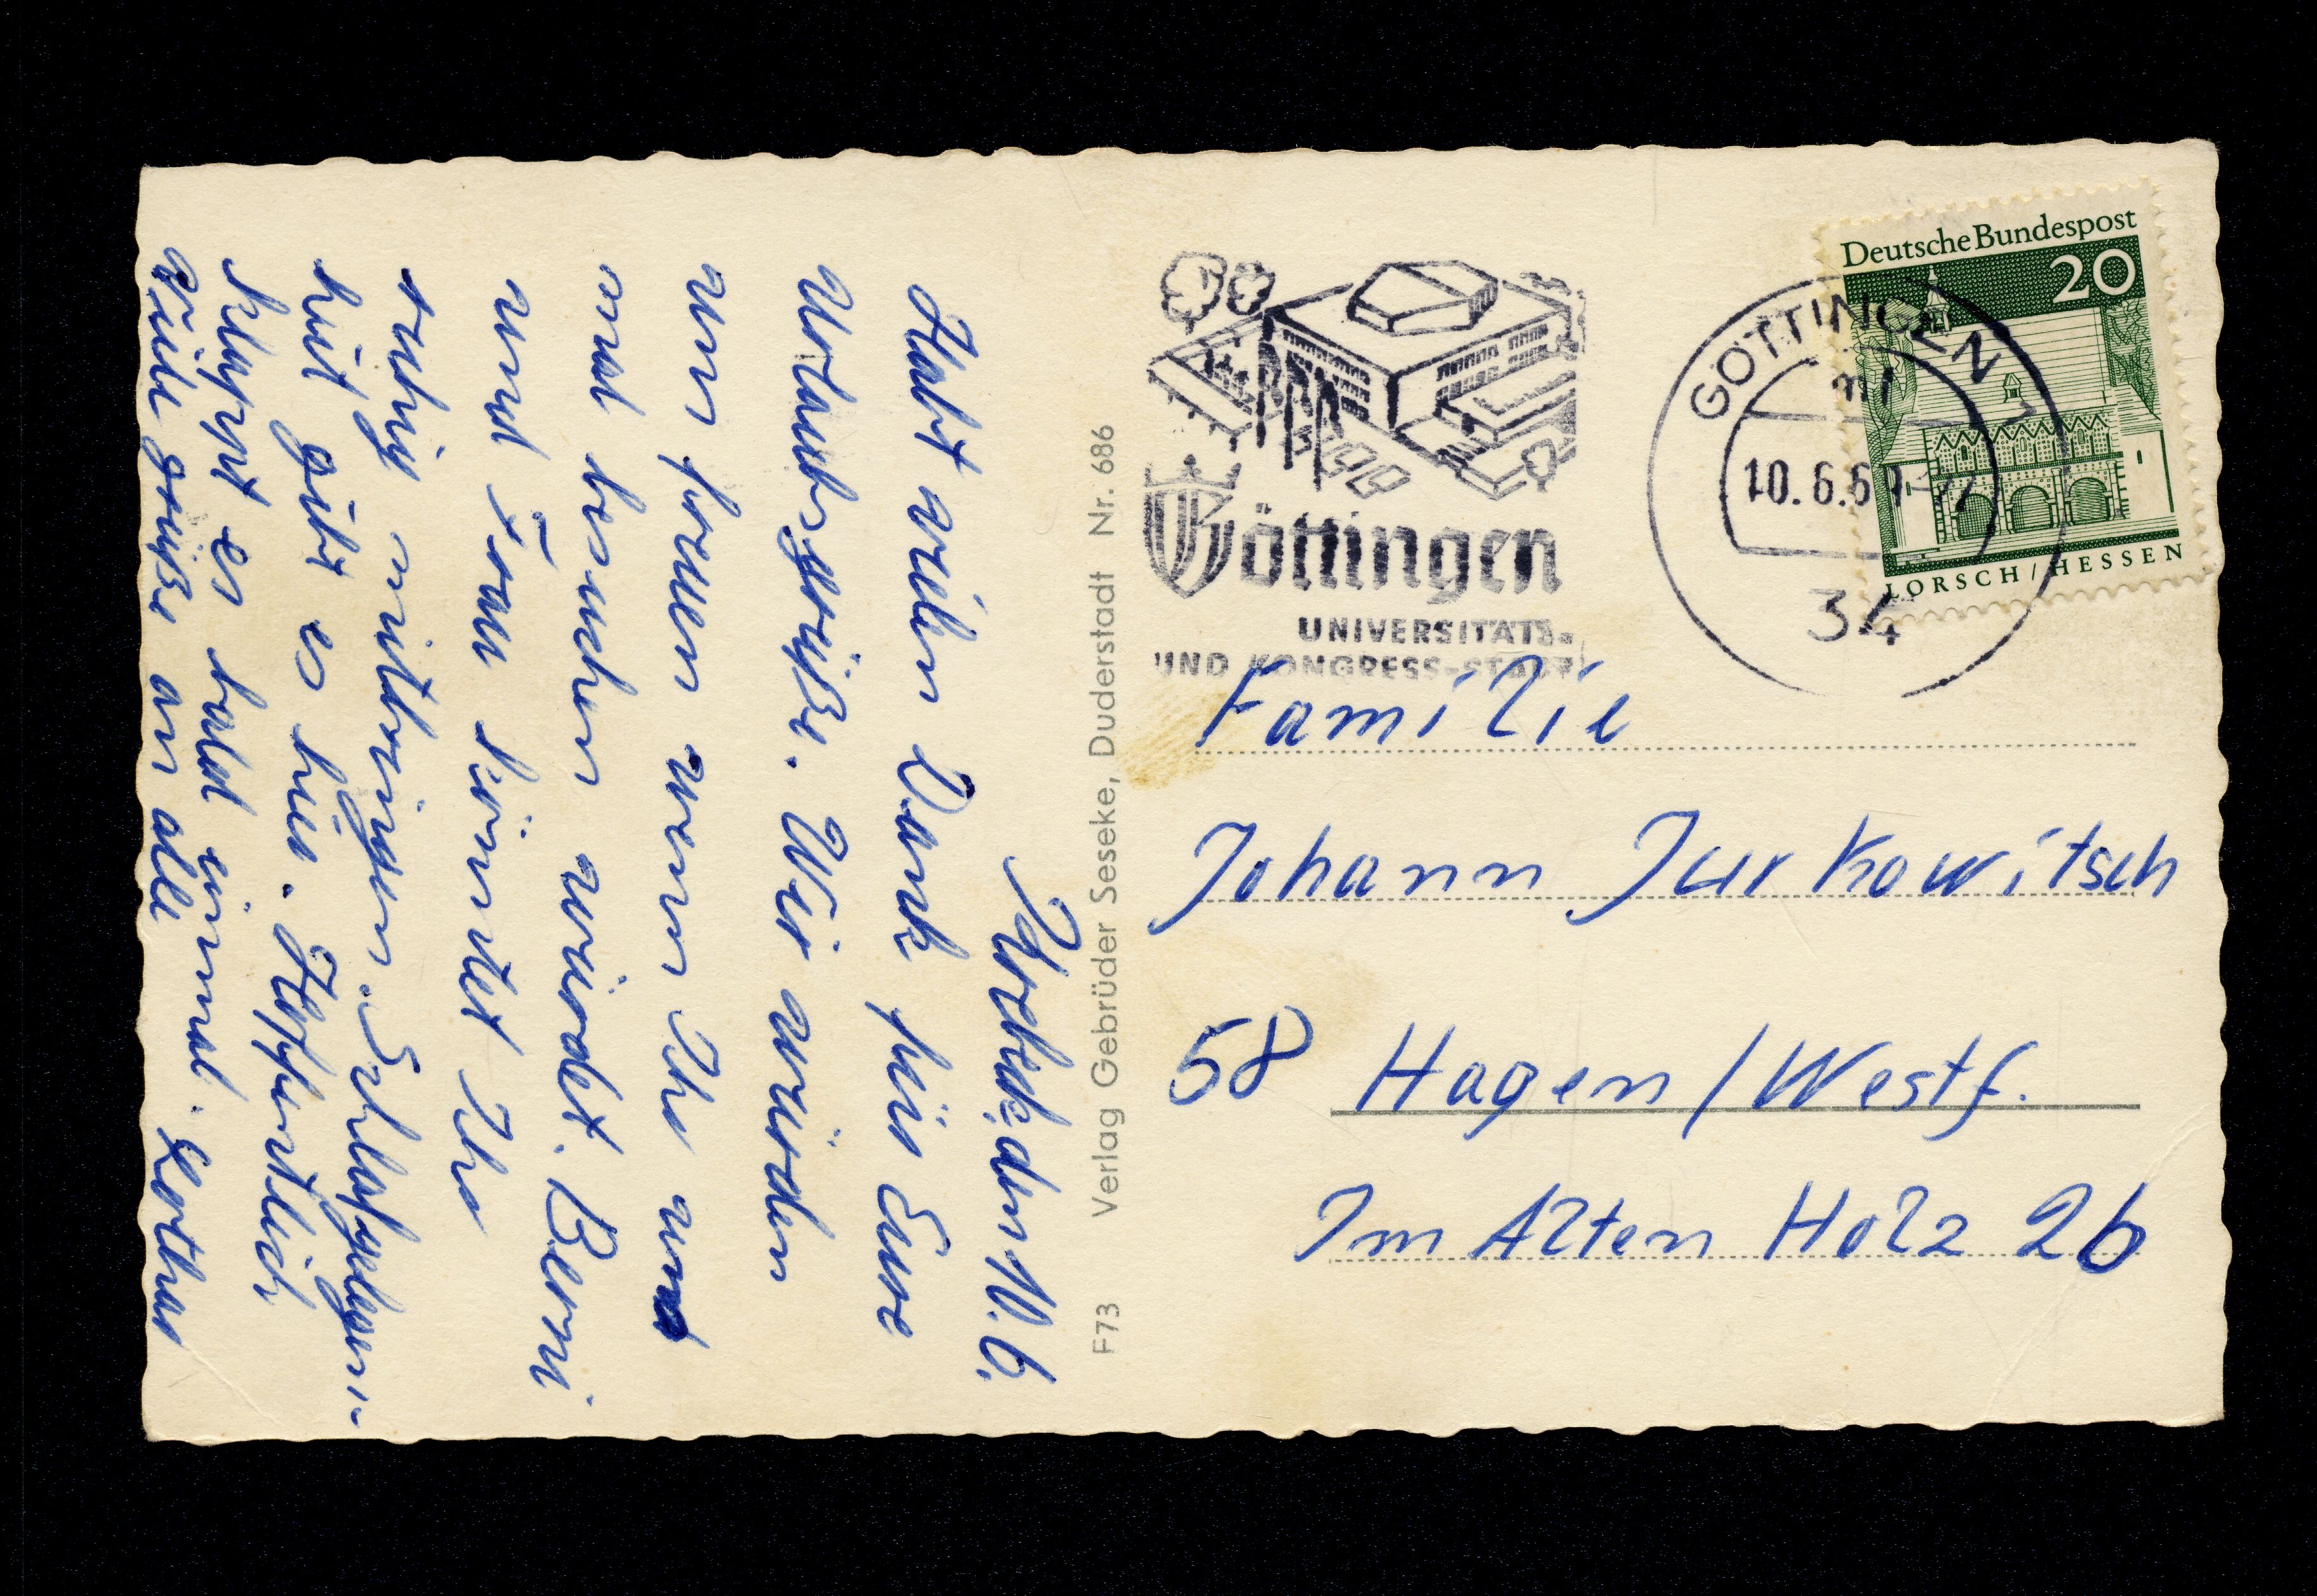 Habt vielen Dank für Eure
Urlaubsgrüße. Wir würden
uns freuen wenn Ihr uns
mal besuchen würdet. Berni
und Frau könntet Ihr
ruhig mitbringen. Schlafgelegen-
heit gibt es hier. Hoffentlich
klappt es bald einmal.
Viele Grüße an alle Lothar
den 10.6.
F73 Verlag Gebrüder Seseke, Duderstadt Nr. 686
Göttingen
UNIVERSITÄTS-
UND KONGRESS-STADT
GÖTTINGEN 1
10.6.6
34
Deutsche Bundespost
20
LORSCH/HESSEN
Familie
Johann Jurkowitsch
58 Hagen/Westf.
Im Alten Holz 26